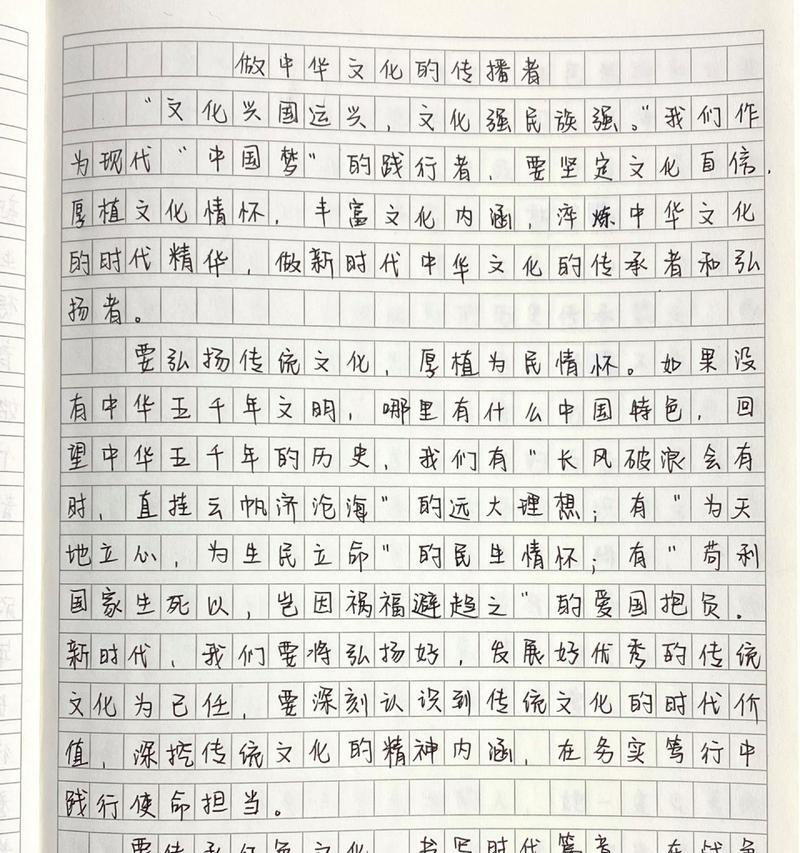 做中华文化的传播者
“文化兴国运兴，文化强民族强。”我们作
为现代“中国梦”的践行者，要坚定文化自信，
厚植文化情怀，丰富文化内涵，淬炼中华文化
的时代精华，做新时代中华文化的传承者和弘
扬者。
要弘扬传统文化，厚植为民情怀。如果没
有中华五千年文明，哪里有什么中国特色，回
望中华五千年的历史，我们有“长风破浪会有
时，直挂云帆济沧海”的远大理想；有“为天
地立心，为生民立命”的民生情怀；有“苟利
国家生死以，岂因祸福避趋之”的爱国抱负。
新时代，我们要将弘扬好，发展好优秀的传统
文化为己任，要深刻认识到传统文化的时代价
值，深挖传统文化的精神内涵，在务实笃行中
践行使命担当。
要传承红色文化，书写时代篇章。在战争